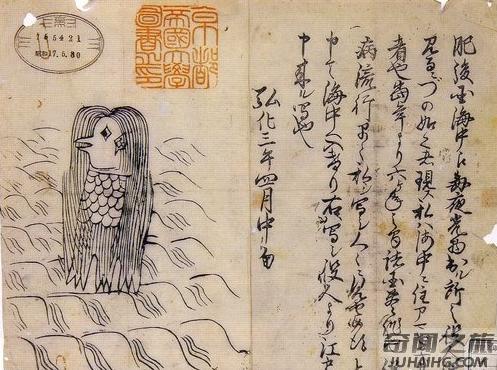 肥後国海中え毎夜光物出ル所之役
見るニづの如之者現ス私ハ海中ニ住ア
者也当年より六ヶ年之間諸国豊作
病流行早々私ヲ写シ人々ニ見せ候得
申て海中へ入けり右ハ写シ役人より江戸
申来ル写也
弘化三年四月中旬
京都
帝國大學
圖書之印
昭和17.5.30
奇闻之旅
JUHAIHG.COM